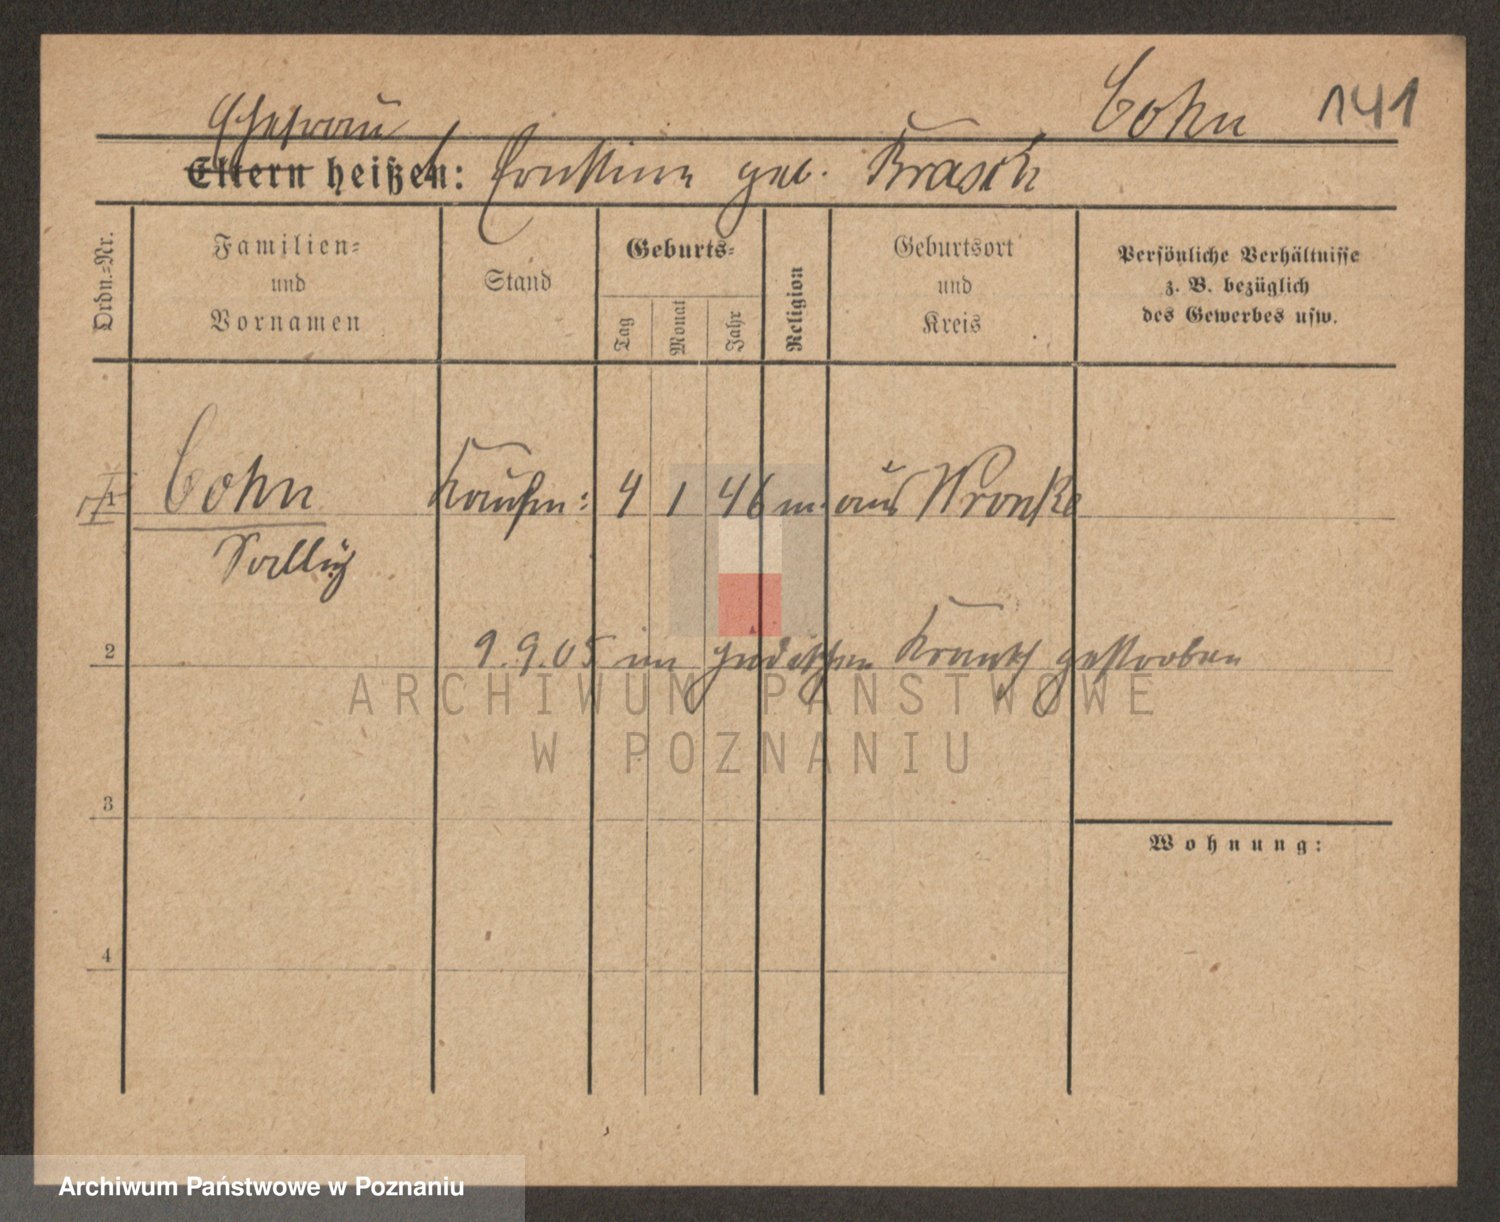 Cohn 141
Ehefrau
Eltern heißen: Ernstine geb. Brasch
Ordn.-Nr.
Familien-
und
Vornamen
Stand
Geburts-
Tag
Monat
Jahr
Religion
Geburtsort
und
Kreis
Persönliche Verhältnisse
z. B. bezüglich
des Gewerbes usw.
1 Cohn Kaufm: 4 1 46 m. aus Wronke
Sally
9.9.05 im jüdischen Krankh gestorben
2
ARCHIWUM PAŃSTWOWE
W POZNANIU
3
Wohnung:
4
Archiwum Państwowe w Poznaniu